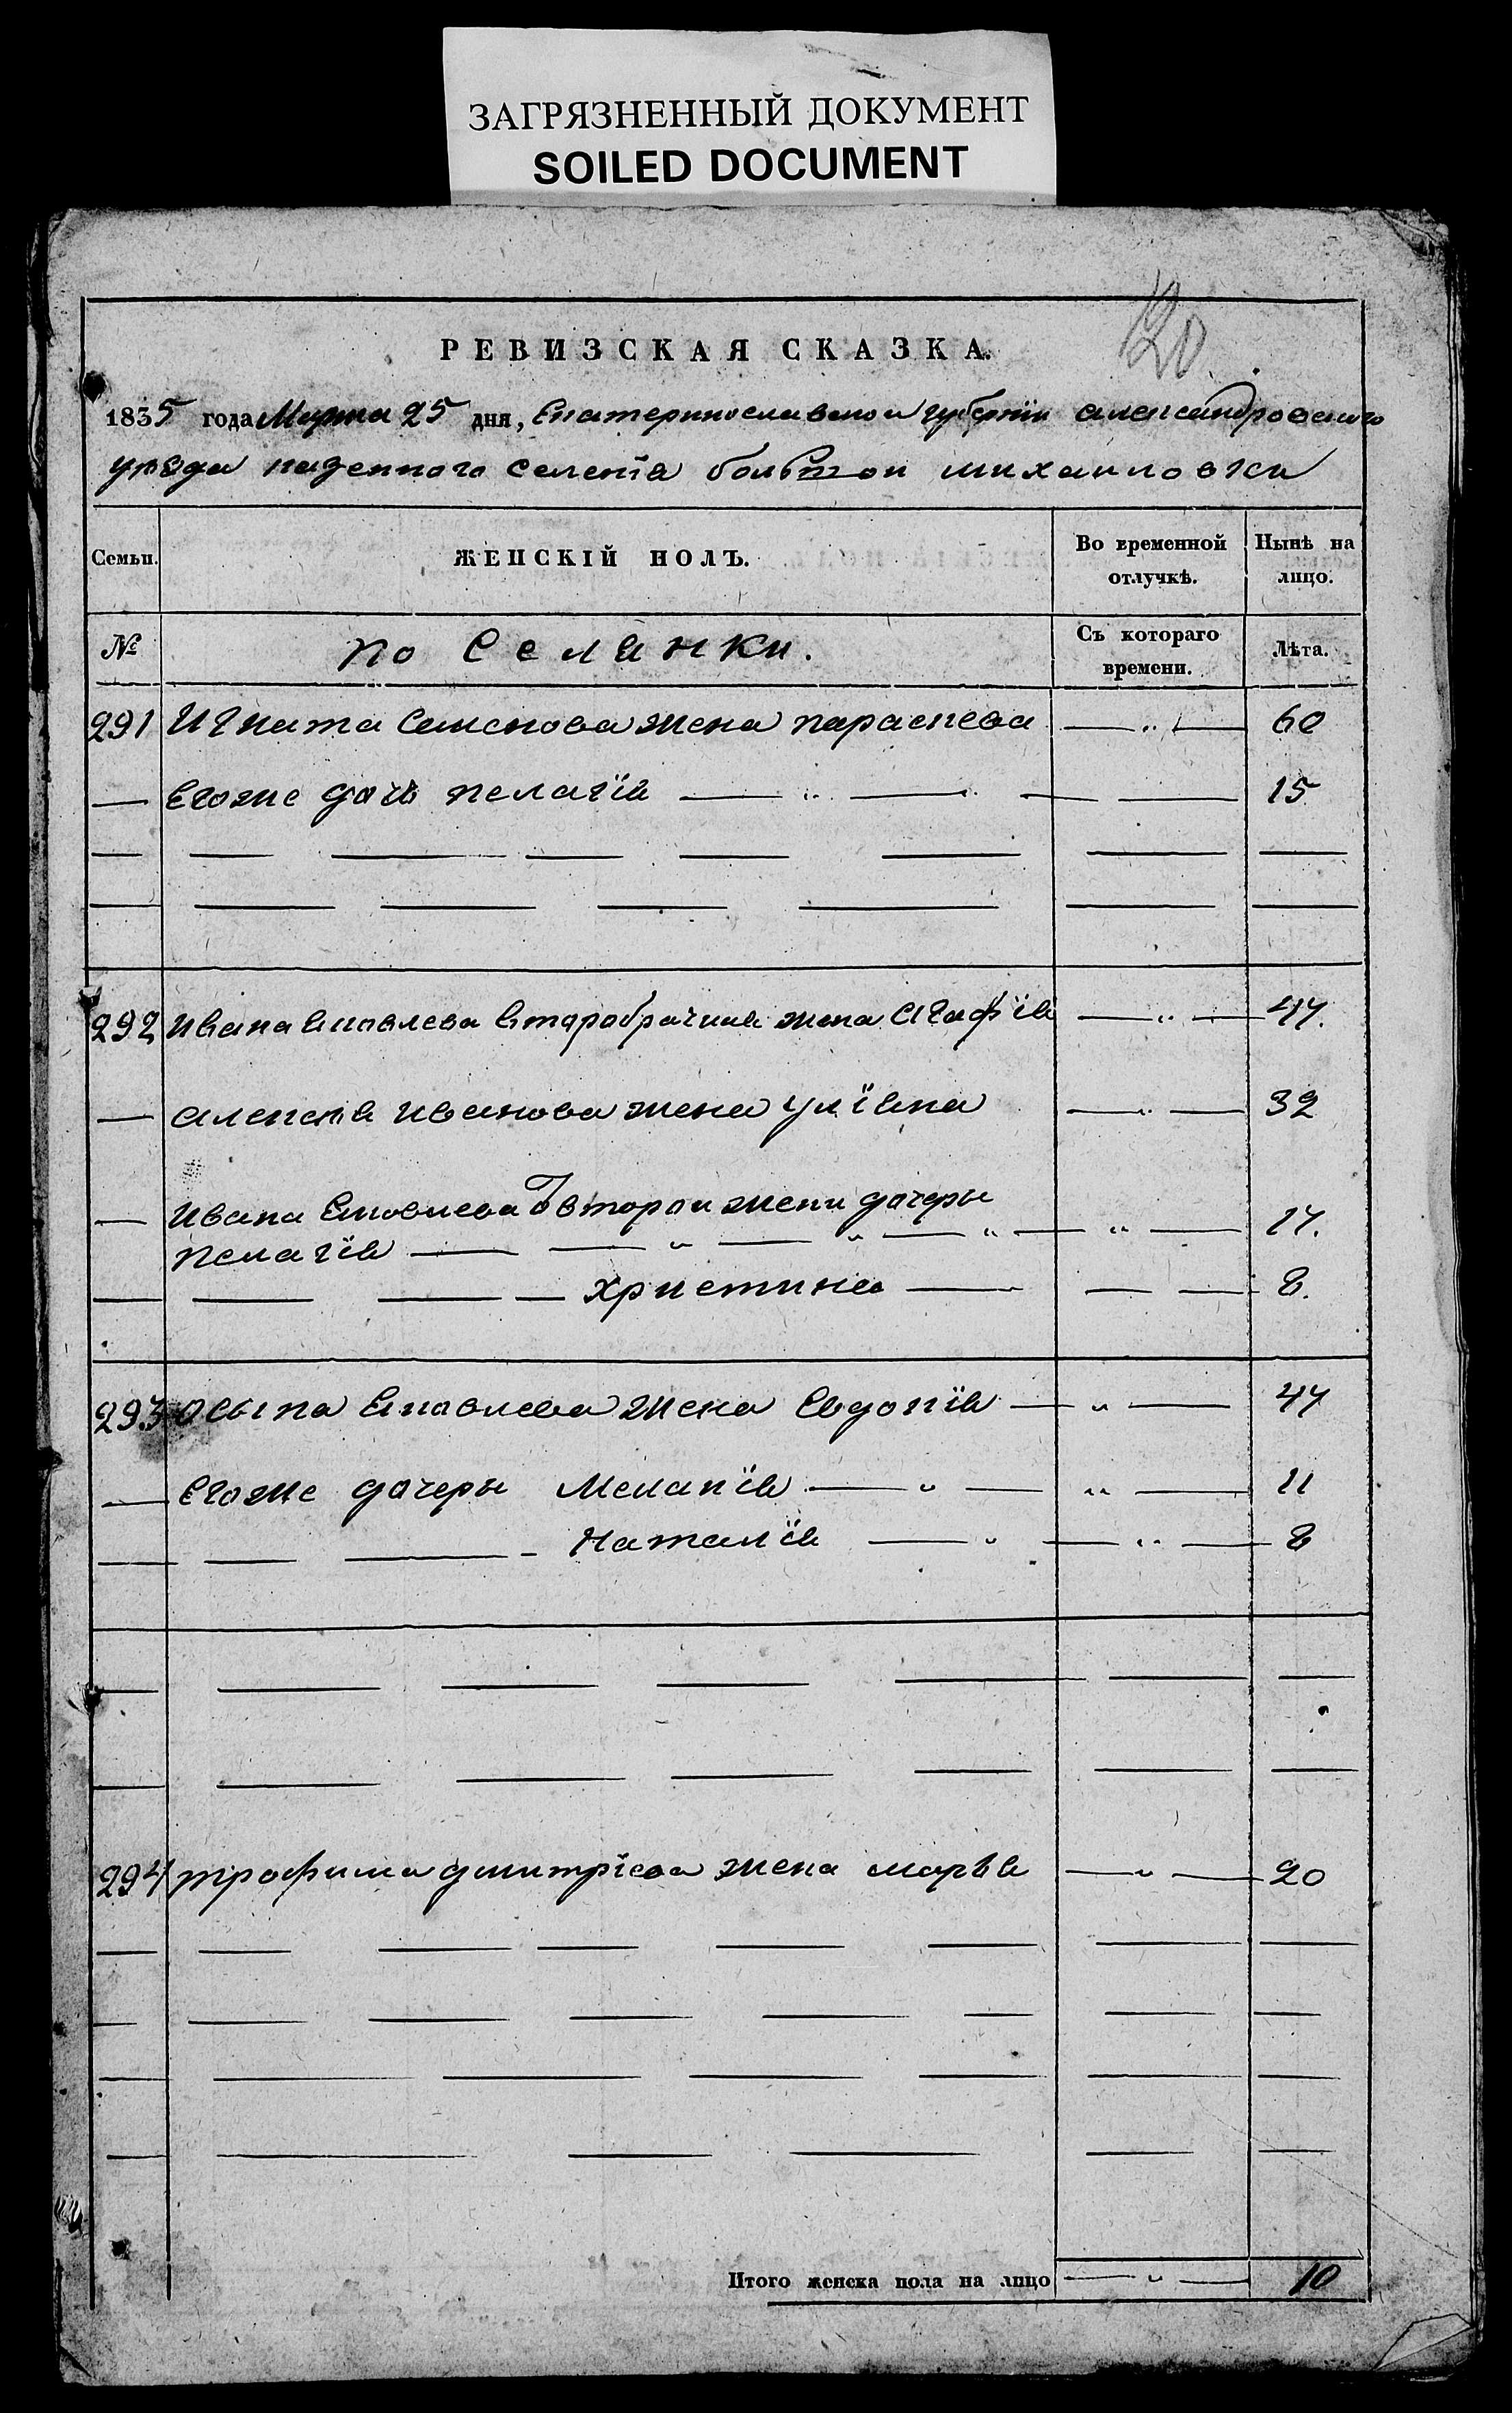 ЗАГРЯЗНЕННЫЙ ДОКУМЕНТ
SOILED DOCUMENT
120
РЕВИЗСКАЯ СКАЗКА.
1835 года Марта 25 дня, Екатеринославской губернїи александровского
уезда казенного селенїя большой михаиловки
Семьи. ЖЕНСКІЙ ПОЛЪ. Во временной отлучкѣ. Нынѣ на лицо.
№ по Селянки. Съ котораго времени. Лѣта.
291 Игната Семенова жена параскева — " — 60
— Егоже дочь пелагїя — " — 15
292 Ивана Яковлева второбрачная жена Агафїя — " — 47.
— алексея иванова жена улїяна — " — 32
— Ивана Яковлева от второй жени дочеры
пелагїя — " — " — " — " — 17.
— христина — 8.
293 Осыпа Яковлева жена Евдокїя — " — 47
— Егоже дочеры Меланїя — " — " — 11
— Наталїя — " — " — 8
294 трофима дмитрїева жена марья — " — 20
Итого женска пола на лицо — " — 10